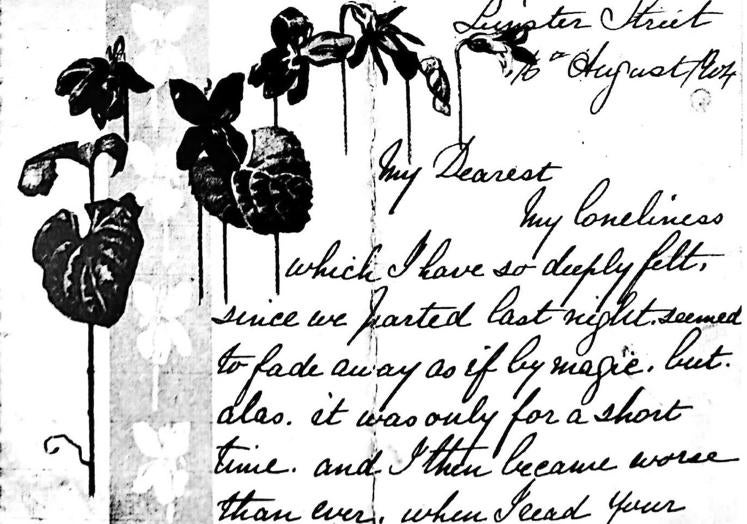 Leinster Street
16th August 1904
My Dearest
My loneliness
which I have so deeply felt,
since we parted last night. seemed
to fade away as if by magic. but.
alas. it was only for a short
time. and I then became worse
than ever. when I read your